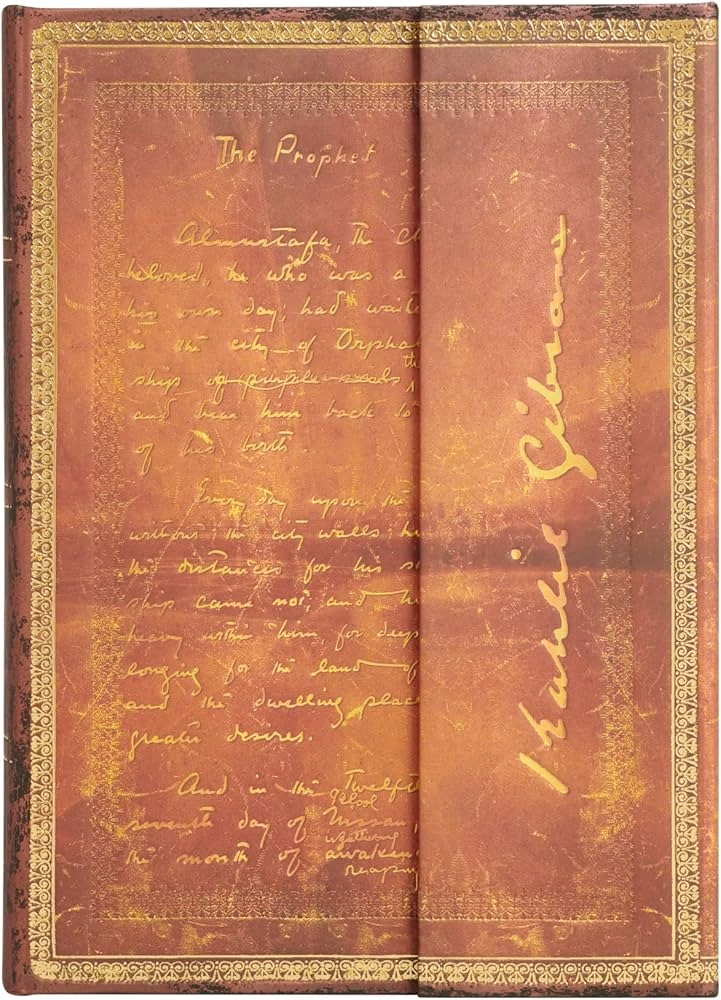 The Prophet
Almustafa, the Ch
beloved, he who was a
his own day, had waite
in the city of Orphal
ship of purple seals the
and bear him back to
of his birth.
Every day upon the
without the city walls he
the distances for his s
ship came not, and h
heavy within him, for deep
longing for the land of
and the dwelling place
greater desires.
And in the Twelfth
seventh day of Nissan,
the month of awaken
reaping
Kahlil Gibran